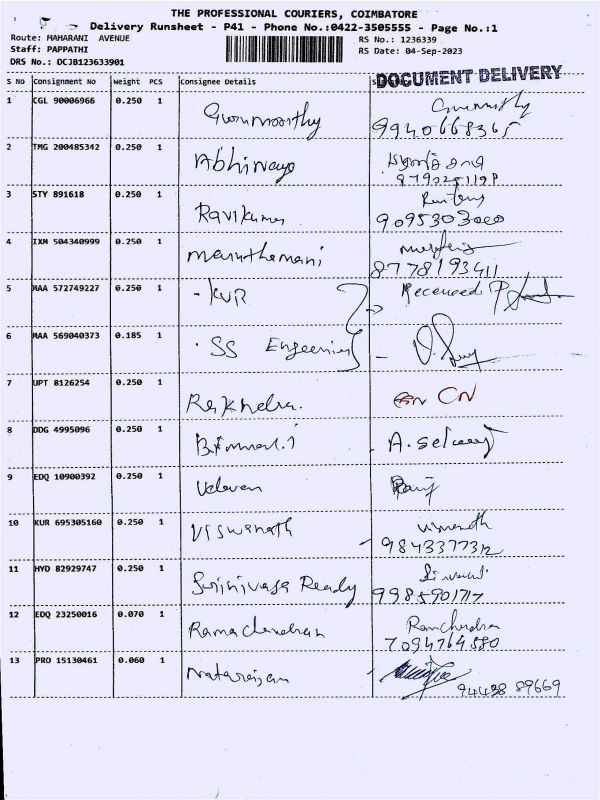 THE PROFESSIONAL COURIERS, COIMBATORE
Delivery Runsheet - P41 - Phone No.:0422-3505555 - Page No.:1
Route: MAHARANI AVENUE
RS No.: 1236339
Staff: PAPPATHI
RS Date: 04-Sep-2023
DRS No.: DCJB123633901
DOCUMENT DELIVERY
S No Consignment No Weight PCS Consignee Details
1 CGL 90006966 0.250 1 Gurumoorthy
9940668365
2 TMG 200485342 0.250 1 Abhinaya
3 STY 891618 0.250 1 Ravikumar
9095303000
4 IXM 504340999 0.250 1 maruthamani
8778193411
5 MAA 572749227 0.250 1 - KVR Received
6 MAA 569040373 0.185 1 SS
7 UPT 8126254 0.250 1 CN
8 DDG 4995096 0.250 1 A.
9 EDQ 10900392 0.250 1 Velavan
10 KUR 695305160 0.250 1 Viswanath
9843377312
11 HYD 82929747 0.250 1 Srinivasa Ready
9985901717
12 EDQ 23250016 0.070 1 Ramachandran Ramchandra
7094764580
13 PRO 15130461 0.060 1 Natarajan
94438 89669